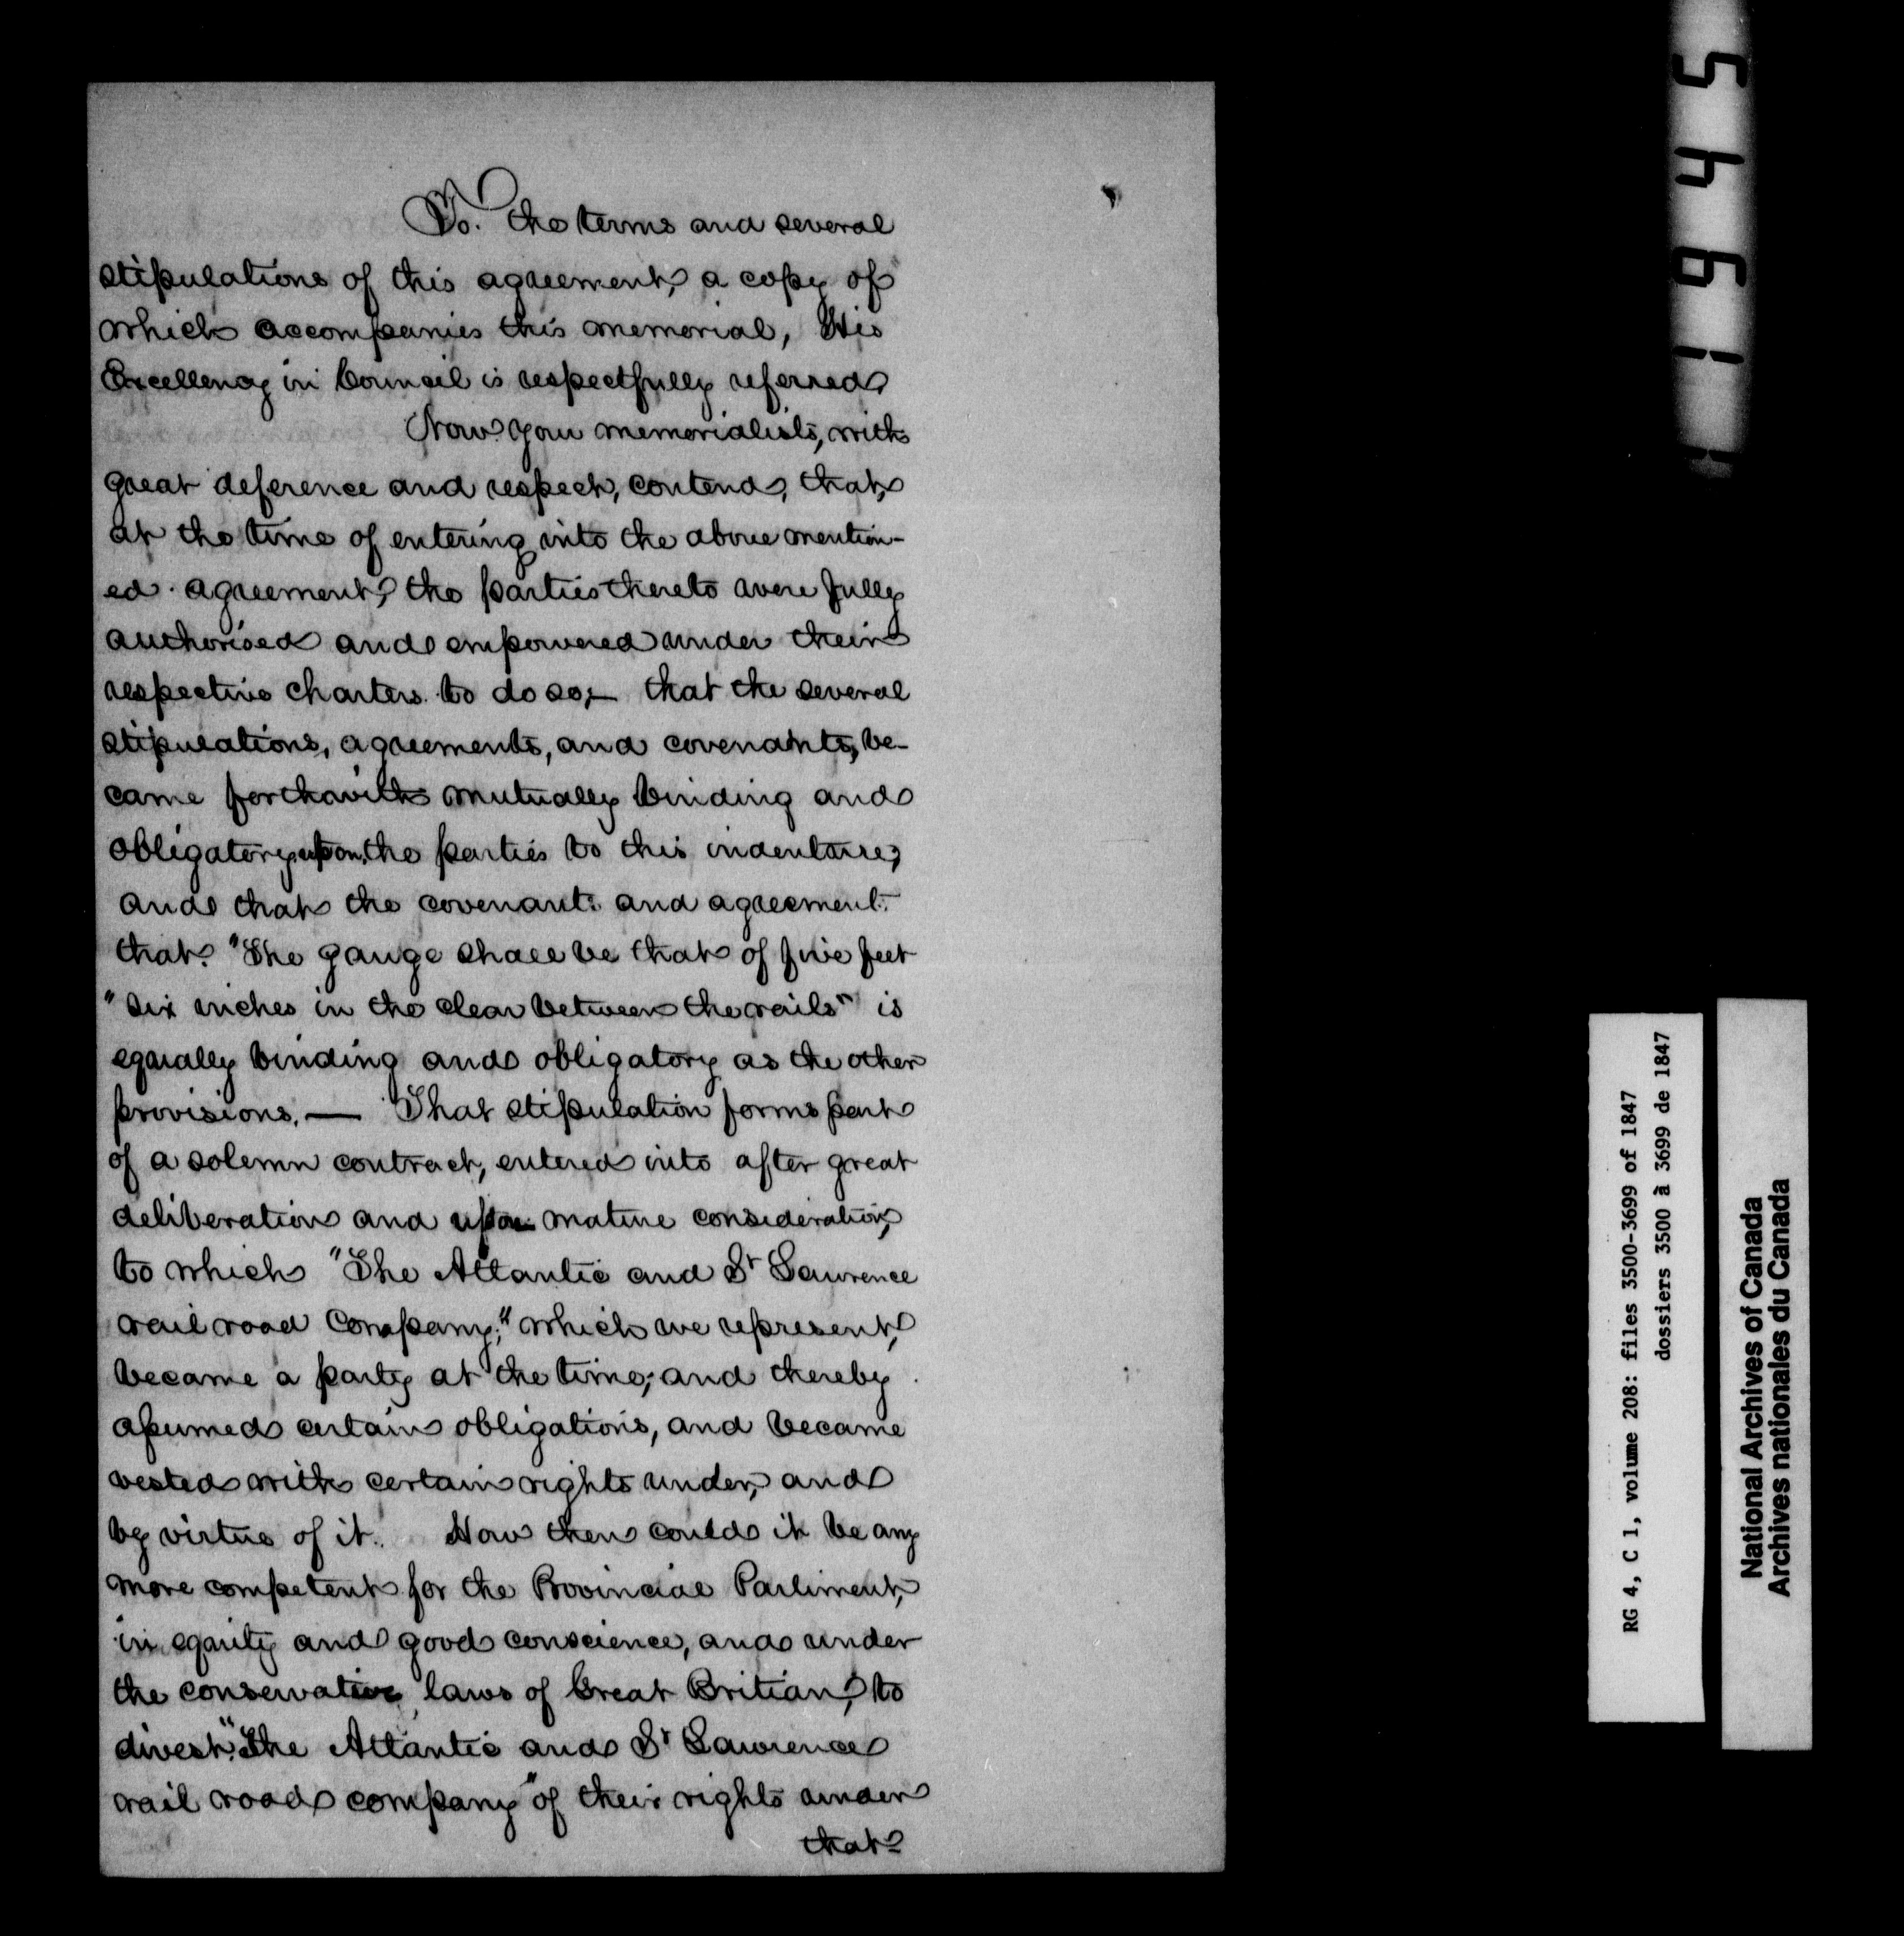 To. the terms and several
stipulations of this agreement, a copy of
which accompanies this memorial, His
Excellency in Council is respectfully referred
Now your memorialists, with
great deference and respect, contend, that,
at the time of entering into the above mention-
ed agreement, the parties thereto were fully
authorised and empowered under their
respective charters to do so;— that the several
stipulations, agreements, and covenants, be-
came forthwith mutually binding and
obligatory upon the parties to this indenture;
and that the covenant and agreement
that "The gauge shall be that of five feet
"six inches in the clear between the rails" is
equally binding and obligatory as the other
provisions.— That stipulation forms part
of a solemn contract, entered into after great
deliberation and upon mature consideration,
to which "The Atlantic and St Lawrence
rail road Company," which we represent,
became a party at the time; and thereby
assumed certain obligations, and became
vested with certain rights under, and
by virtue of it. How then could it be any
more competent for the Provincial Parliment,
in equity and good conscience, and under
the conservative laws of Great Britian, to
divest "The Atlantic and St Lawrence
rail road company" of their rights under
that
54691
RG 4, C 1, volume 208: files 3500-3699 of 1847
dossiers 3500 à 3699 de 1847
National Archives of Canada
Archives nationales du Canada